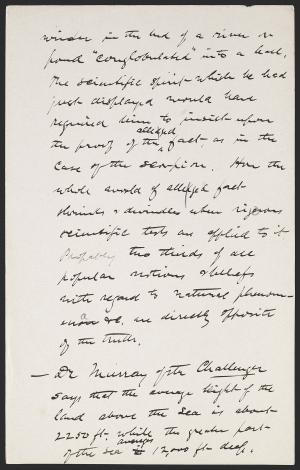 winter in the bed of a river or
pond "conglobulated" into a ball.
The scientific spirit which he had
just displayed would have
required him to insist upon
the proof of the alleged fact, as in the
case of the scorpion. How the
whole world of alleged fact
shrinks & dwindles when rigorous
scientific tests are applied to it
Probably two thirds of all
popular notions & beliefs
with regard to natural phenom-
enon &c. are directly opposite
of the truth.
— Dr Murray of the Challenger
says that the average height of the
land above the sea is about
2250 ft. while the greater part
of the sea averages 12,000 ft deep.